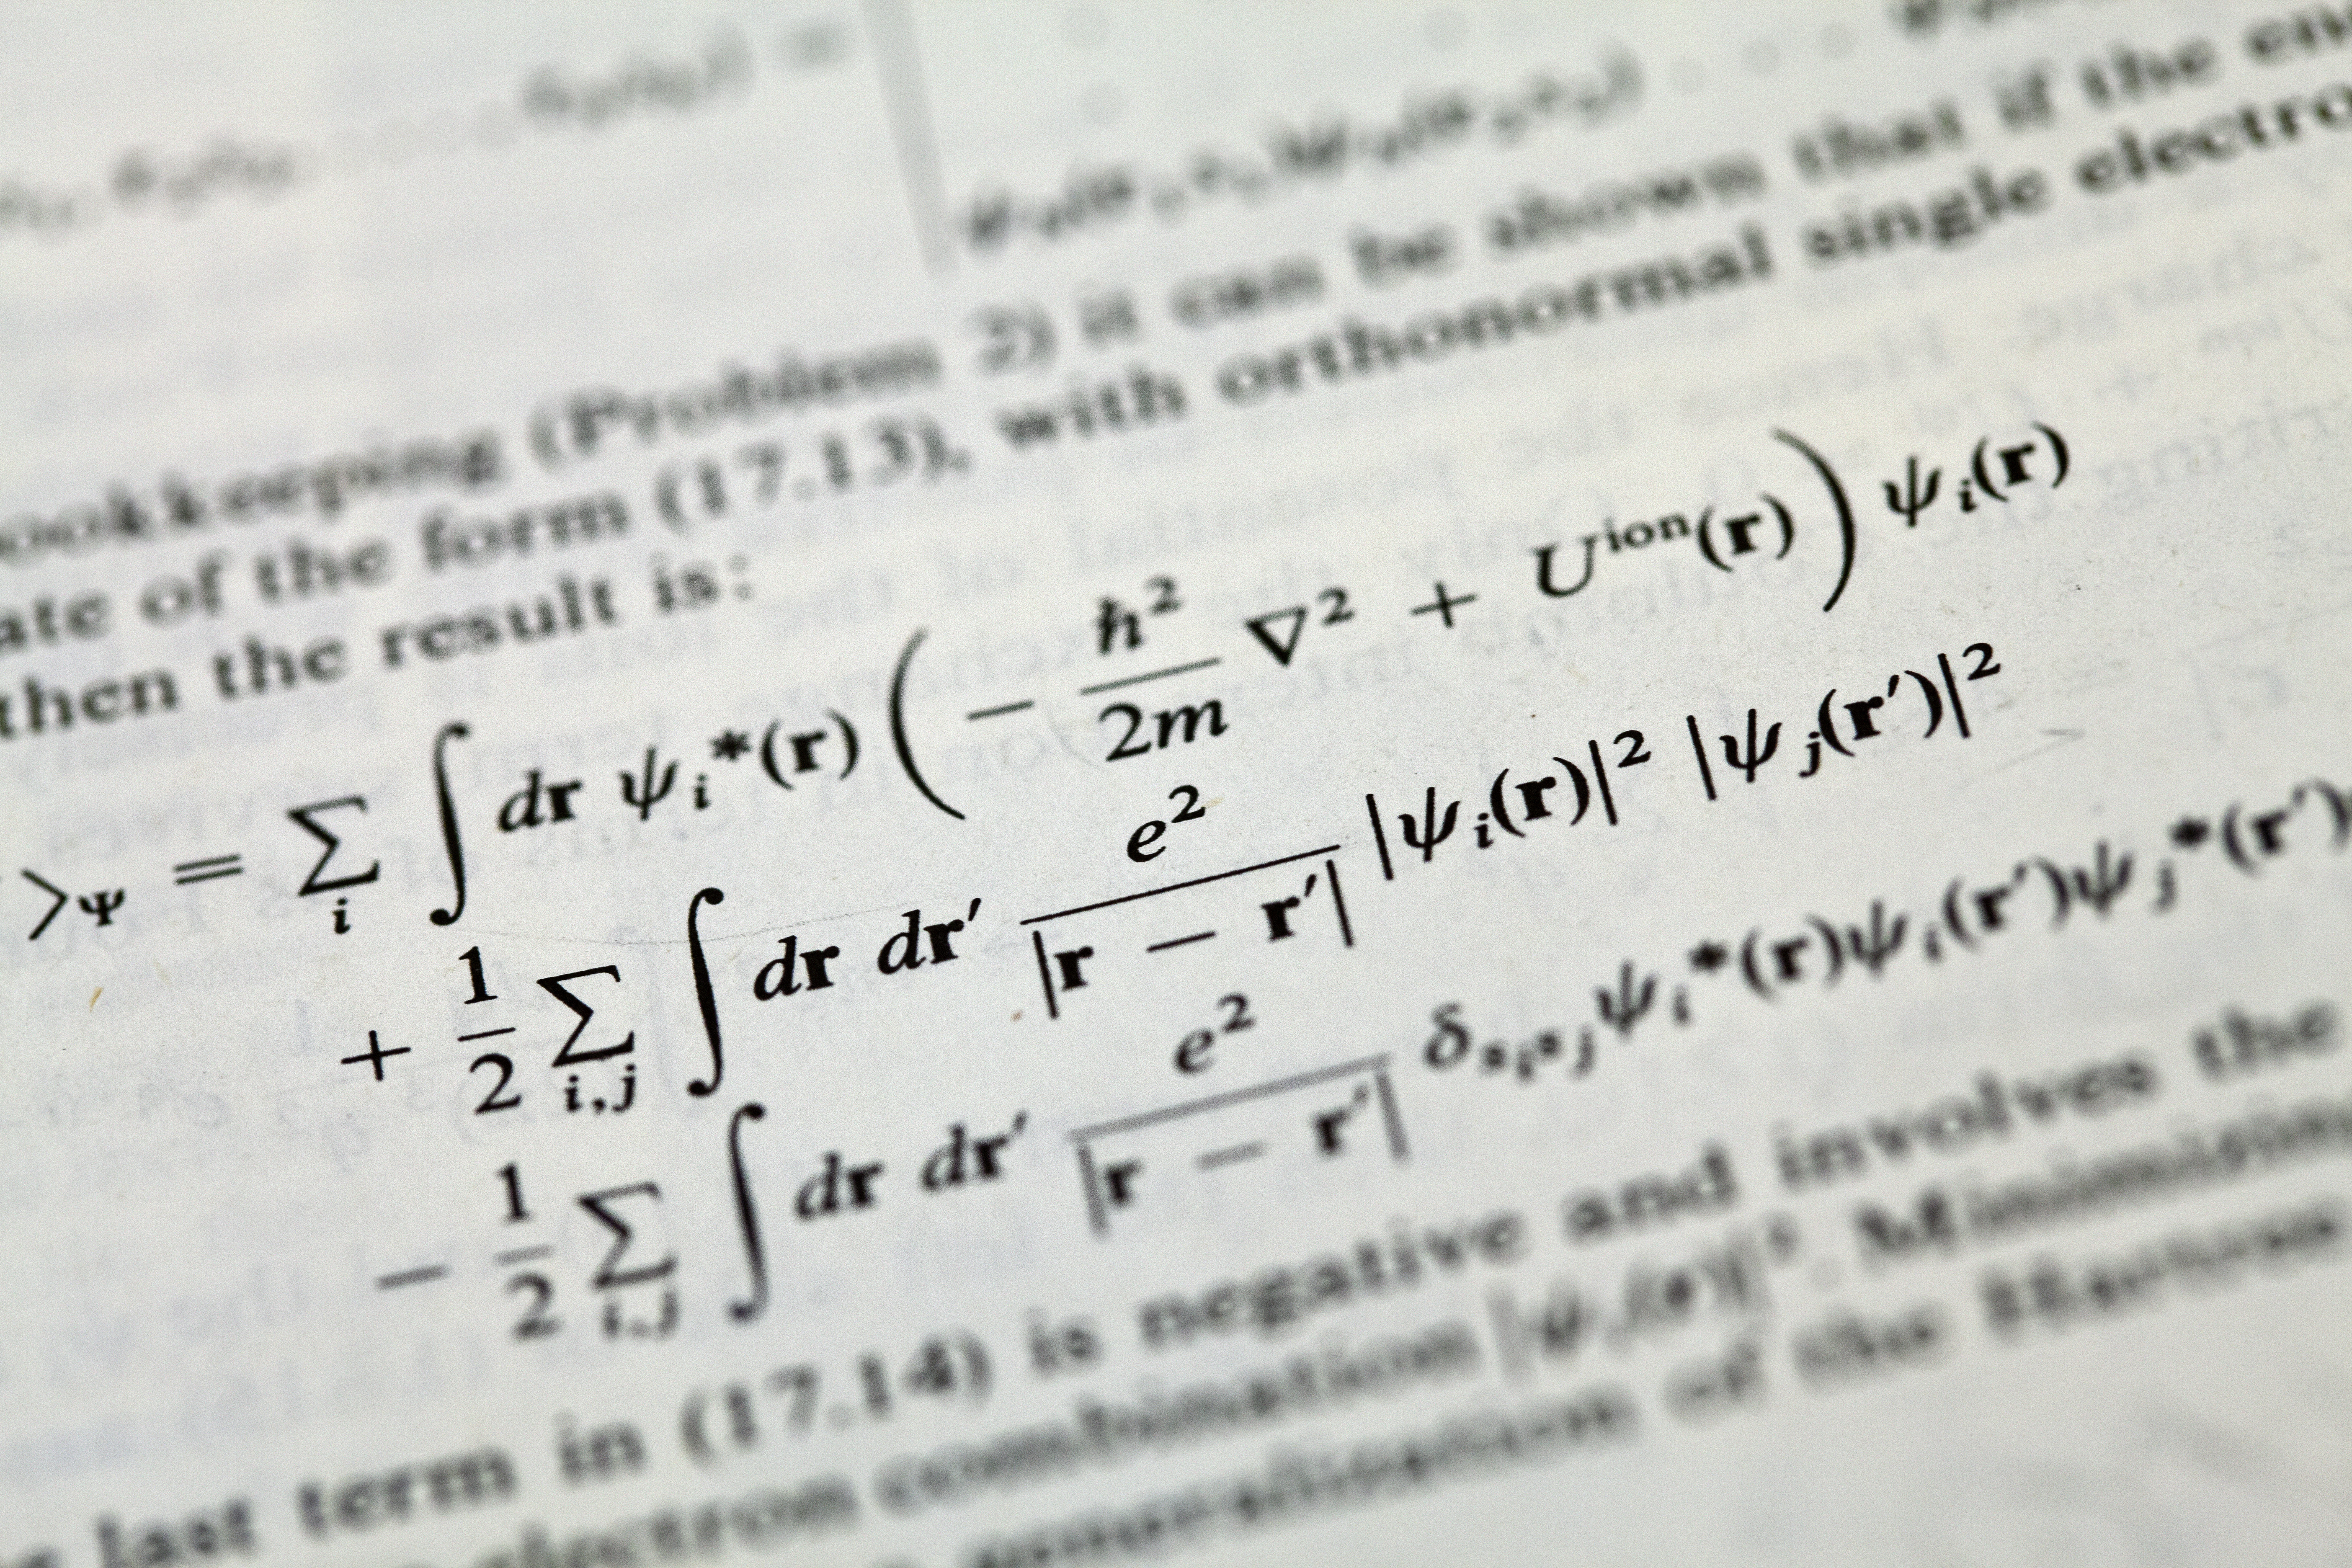 ookkeeping (Problem 2) it can be shown that if the en
ate of the form (17.13), with orthonormal single electro
then the result is:
⟩_Ψ = ∑_i ∫ d𝐫 ψ_i*(𝐫) ( − ℏ²/2m ∇² + U^ion(𝐫) ) ψ_i(𝐫)
+ 1/2 ∑_{i,j} ∫ d𝐫 d𝐫′ e²/|𝐫 − 𝐫′| |ψ_i(𝐫)|² |ψ_j(𝐫′)|²
− 1/2 ∑_{i,j} ∫ d𝐫 d𝐫′ e²/|𝐫 − 𝐫′| δ_{s_i s_j} ψ_i*(𝐫)ψ_i(𝐫′)ψ_j*(𝐫′)
last term in (17.14) is negative and involves the
electron combination |ψ_i(𝐫)|². Minimizing
generalization of the Hartree